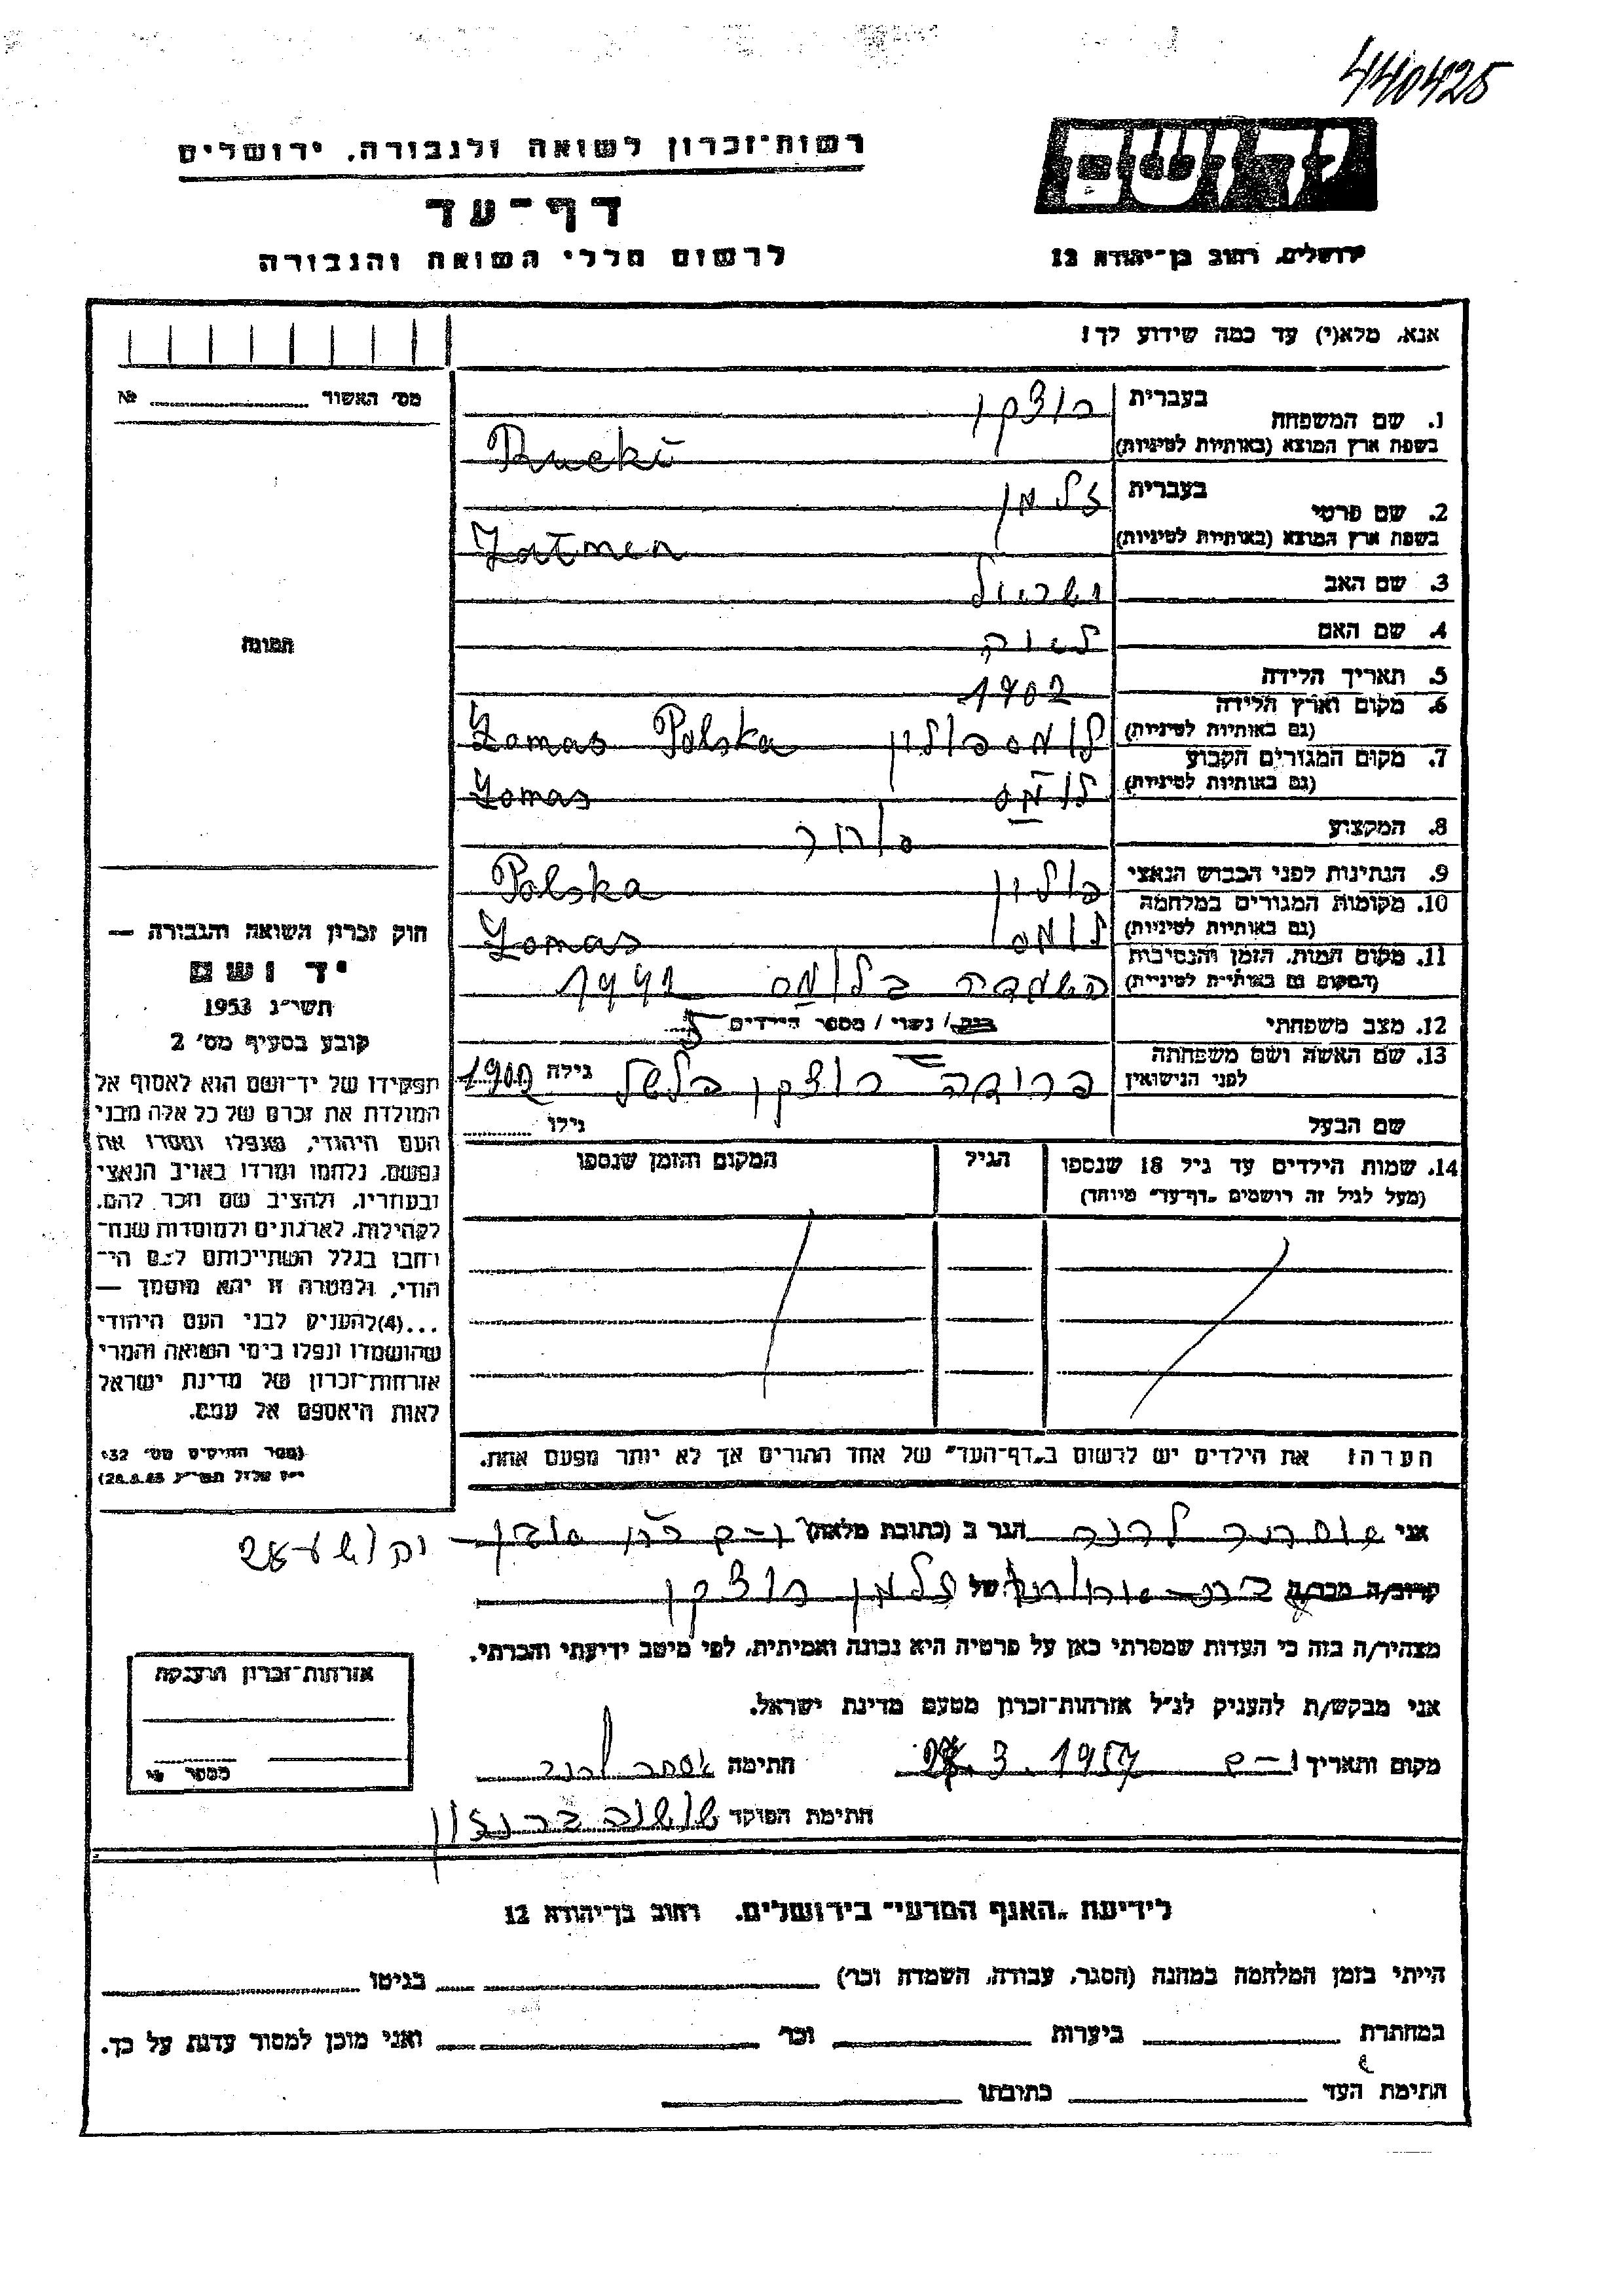 440425
רשות־זכרון לשואה ולגבורה, ירושלים
יד ושם
דף־עד
לרשום חללי השואה והגבורה
ירושלים, רחוב בן־יהודה 12
אנא, מלא(י) עד כמה שידוע לך!
מס׳ האשור № 
1. שם המשפחה בעברית רוצקי
בשפת ארץ המוצא (באותיות לטיניות) Rucki
2. שם פרטי בעברית זלמן
בשפת ארץ המוצא (באותיות לטיניות) Załmen
3. שם האב ישראל
4. שם האם
5. תאריך הלידה 1902
6. מקום וארץ הלידה (גם באותיות לטיניות) פולין Polska
7. מקום המגורים הקבוע (גם באותיות לטיניות)
8. המקצוע סוחר
9. הנתינות לפני הכבוש הנאצי פולין Polska
10. מקומות המגורים במלחמה (גם באותיות לטיניות)
11. מקום המות, הזמן והנסיבות (המקום גם באותיות לטיניות) השמדה 1941
12. מצב משפחתי רוק / נשוי / מספר הילדים 5
13. שם האשה ושם משפחתה לפני הנישואין רוצקי גילה
שם הבעל גילו
14. שמות הילדים עד גיל 18 שנספו
(מעל לגיל זה רושמים „דף־עד״ מיוחד)
הגיל
המקום והזמן שנספו
הערה! את הילדים יש לרשום ב„דף־העד״ של אחד ההורים אך לא יותר מפעם אחת.
תמונה
חוק זכרון השואה והגבורה —
יד ושם
תשי״ג 1953
קובע בסעיף מס׳ 2
תפקידו של יד־ושם הוא לאסוף אל
המולדת את זכרם של כל אלה מבני
העם היהודי, שנפלו ומסרו את
נפשם, נלחמו ומרדו באויב הנאצי
ובעוזריו, ולהציב שם וזכר להם,
לקהילות, לארגונים ולמוסדות שנח־
רבו בגלל השתייכותם לעם הי־
הודי, ולמטרה זו יהא מוסמך —
...(4)להעניק לבני העם היהודי
שהושמדו ונפלו בימי השואה והמרי
אזרחות־זכרון של מדינת ישראל
לאות היאספם אל עמם.
(ספר החוקים מס׳ 132
אני הגר ב (כתובת מלאה)
קרוב/ה מכר/ה של זלמן רוצקי
מצהיר/ה בזה כי העדות שמסרתי כאן על פרטיה היא נכונה ואמיתית, לפי מיטב ידיעתי והכרתי.
אני מבקש/ת להעניק לנ״ל אזרחות־זכרון מטעם מדינת ישראל.
מקום ותאריך 3. 1957 חתימה
חתימת הפוקד
אזרחות־זכרון הוענקה
מספר
לידיעת „האגף המדעי״ בירושלים, רחוב בן־יהודה 12
הייתי בזמן המלחמה במחנה (הסגר, עבודה, השמדה וכו׳) בגיטו
במחתרת ביערות וכו׳ ואני מוכן למסור עדות על כך.
חתימת העד כתובתו